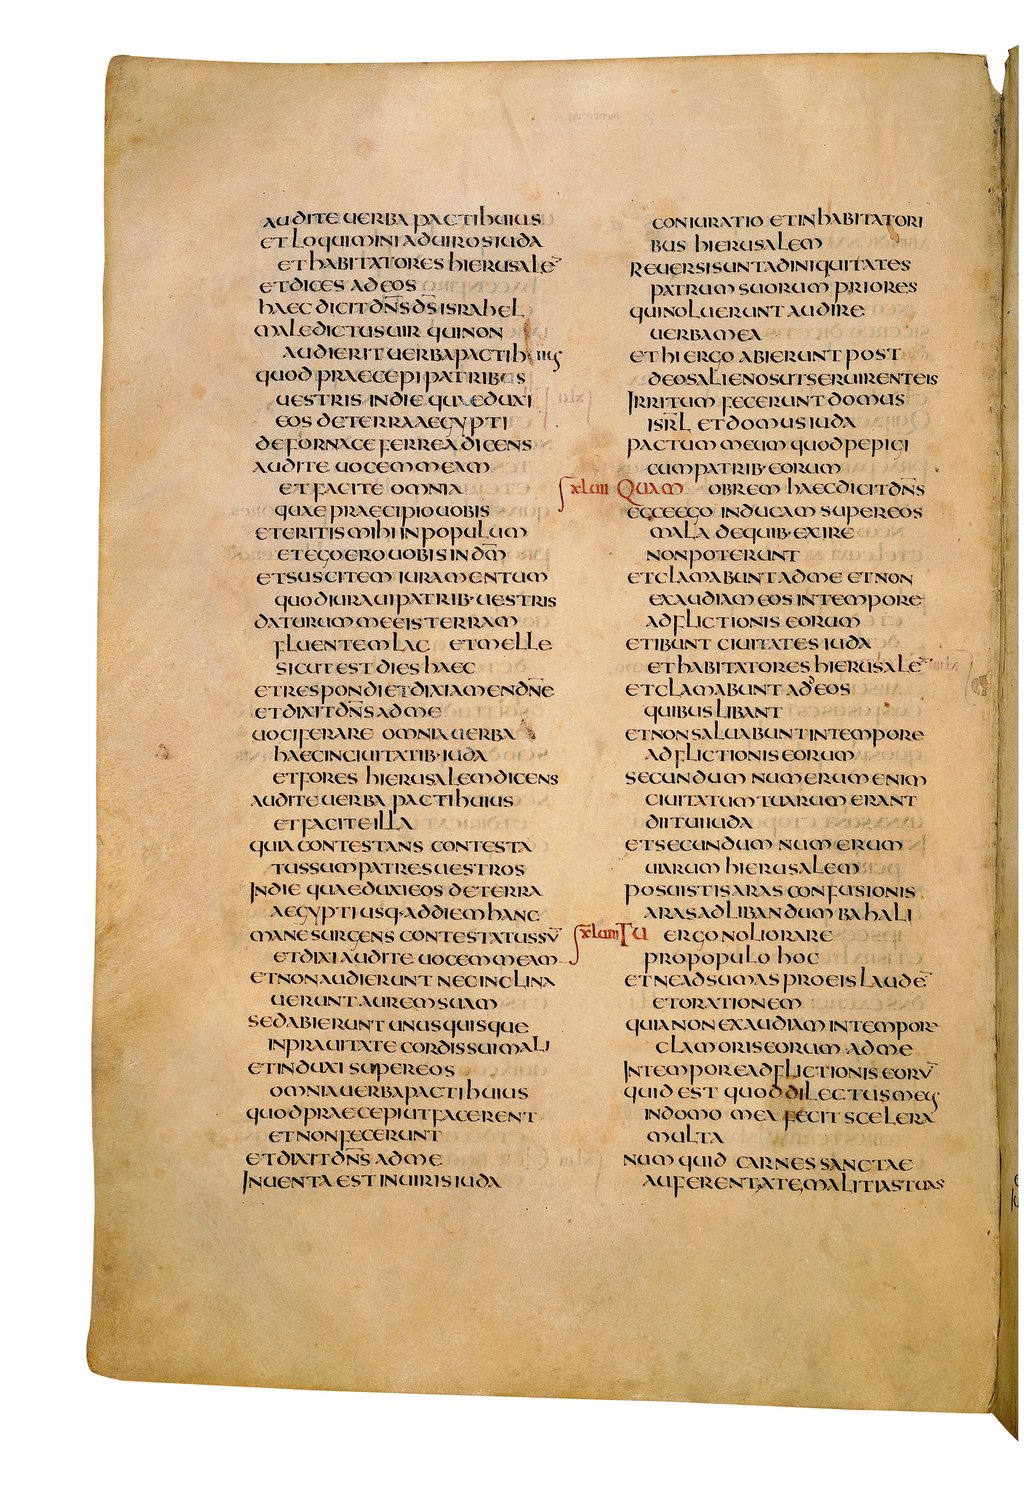 AUDITE UERBA PACTI HUIUS
ET LOQUIMINI AD UIROS IUDA
ET HABITATORES HIERUSALE̅
ET DICES AD EOS
HAEC DICIT DN̅S DS̅ ISRAHEL
MALEDICTUS UIR QUI NON
AUDIERIT UERBA PACTI HUIUS
QUOD PRAECEPI PATRIBUS
UESTRIS IN DIE QUA EDUXI
EOS DE TERRA AEGYPTI
DE FORNACE FERREA DICENS
AUDITE UOCEM MEAM
ET FACITE OMNIA
QUAE PRAECIPIO UOBIS
ET ERITIS MIHI IN POPULUM
ET EGO ERO UOBIS IN DM̅
ET SUSCITEM IURAMENTUM
QUOD IURAUI PATRIB· UESTRIS
DATURUM ME EIS TERRAM
FLUENTEM LAC ET MELLE
SICUT EST DIES HAEC
ET RESPONDI ET DIXI AMEN DN̅E
ET DIXIT DN̅S AD ME
UOCIFERARE OMNIA UERBA
HAEC IN CIUITATIB· IUDA
ET FORES HIERUSALEM DICENS
AUDITE UERBA PACTI HUIUS
ET FACITE ILLA
QUIA CONTESTANS CONTESTA
TUS SUM PATRES UESTROS
IN DIE QUA EDUXI EOS DE TERRA
AEGYPTI USQ· AD DIEM HANC
MANE SURGENS CONTESTATUS SU̅
ET DIXI AUDITE UOCEM MEAM
ET NON AUDIERUNT NEC INCLINA
UERUNT AUREM SUAM
SED ABIERUNT UNUSQUISQUE
IN PRAUITATE CORDIS SUI MALI
ET INDUXI SUPER EOS
OMNIA UERBA PACTI HUIUS
QUOD PRAECEPI UT FACERENT
ET NON FECERUNT
ET DIXIT DN̅S AD ME
INUENTA EST IN UIRIS IUDA
CONIURATIO ET IN HABITATORI
BUS HIERUSALEM
REUERSI SUNT AD INIQUITATES
PATRUM SUORUM PRIORES
QUI NOLUERUNT AUDIRE
UERBA MEA
ET HI ERGO ABIERUNT POST
DEOS ALIENOS UT SERUIRENT EIS
IRRITUM FECERUNT DOMUS
ISRL̅ ET DOMUS IUDA
PACTUM MEUM QUOD PEPIGI
CUM PATRIB· EORUM
xluii QUAM OBREM HAEC DICIT DN̅S
ECCE EGO INDUCAM SUPER EOS
MALA DE QUIB· EXIRE
NON POTERUNT
ET CLAMABUNT AD ME ET NON
EXAUDIAM EOS IN TEMPORE
ADFLICTIONIS EORUM
ET IBUNT CIUITATES IUDA
ET HABITATORES HIERUSALE̅
ET CLAMABUNT AD EOS
QUIBUS LIBANT
ET NON SALUABUNT IN TEMPORE
ADFLICTIONIS EORUM
SECUNDUM NUMERUM ENIM
CIUITATUM TUARUM ERANT
DII TUI IUDA
ET SECUNDUM NUMERUM
UIARUM HIERUSALEM
POSUISTIS ARAS CONFUSIONIS
ARAS AD LIBANDUM BAHALI
xluiii TU ERGO NOLI ORARE
PRO POPULO HOC
ET NE ADSUMAS PRO EIS LAUDE̅
ET ORATIONEM
QUIA NON EXAUDIAM IN TEMPORE
CLAMORIS EORUM AD ME
IN TEMPORE ADFLICTIONIS EORU̅
QUID EST QUOD DILECTUS MEUS
IN DOMO MEA FECIT SCELERA
MULTA
NUMQUID CARNES SANCTAE
AUFERENT A TE MALITIAS TUAS